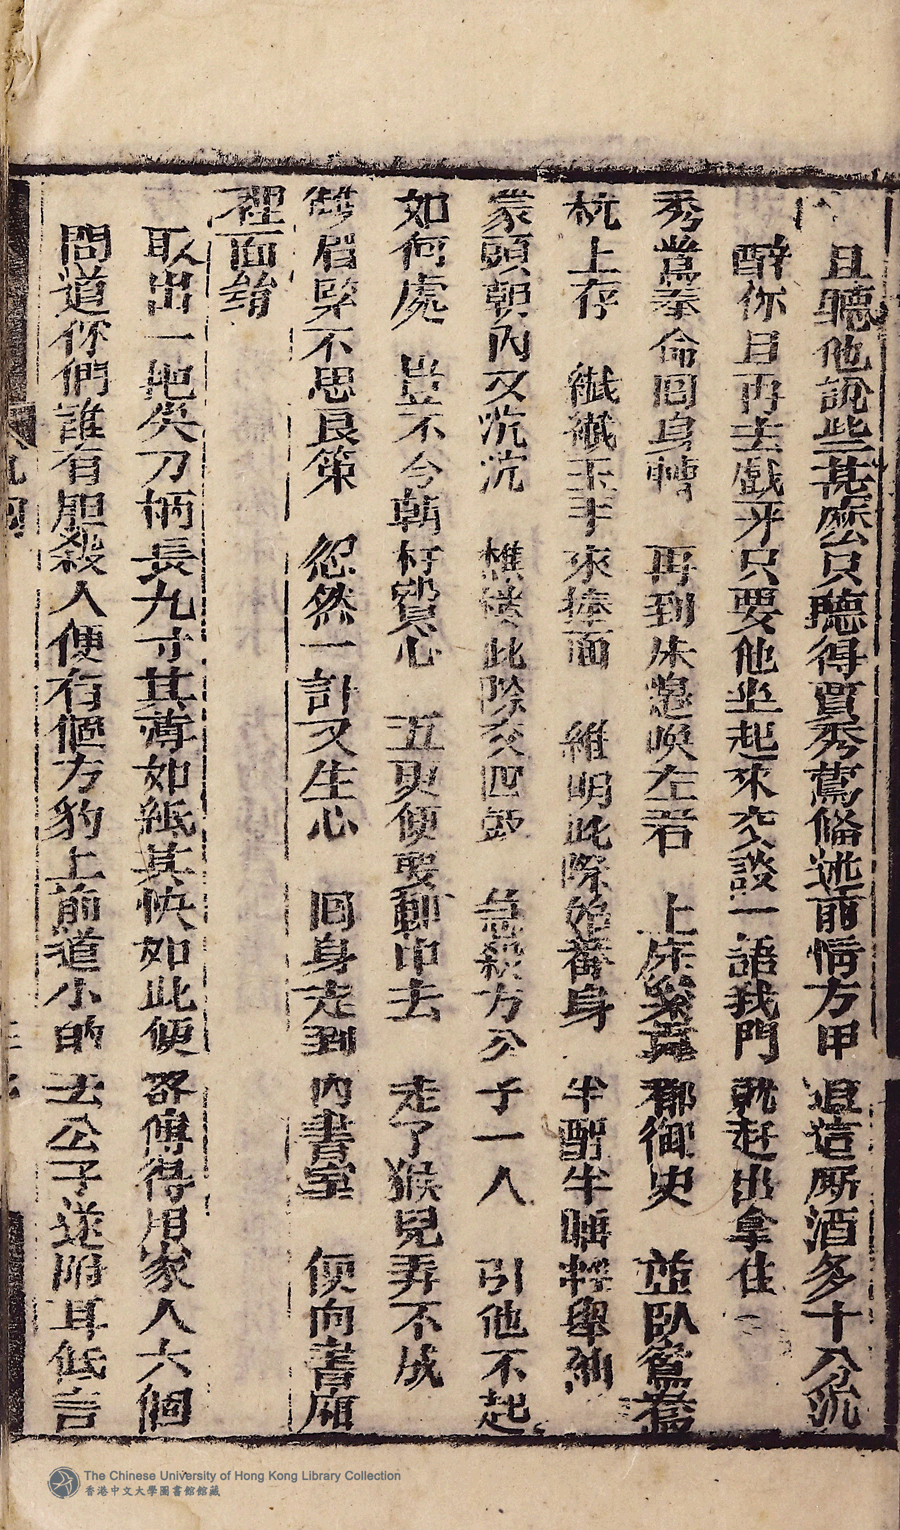 且聽他說些甚麽只聽得賈秀鶯备述前情方甲道這厮酒多十分沉
醉你且再去戲牙只要他坐起來交談一語我門就赶出拿住
秀鶯奉命囬身轉　再到床邊喚左君　上床　　鄒御史　並臥鴛鴦
枕上存　纎纎玉手來捧面　維明此際始番身　半酣半睡輕舉
蒙頭朝內又沉沉　樵楼此際交四鼓　急殺方公子一人　引他不起
如何處　豈不今朝枉費心　五更便要動身去　走了猴兒弄不成
雙眉緊不思良策　忽然一計又生心　囬身走到內書室　便向書厢
裡面維
取出一把尖刀柄長九寸其薄如紙其快如此便　傳得用家人六個
問道你們誰有胆殺人便有個方豹上前道小的去公子遂附耳低言
The Chinese University of Hong Kong Library Collection
香港中文大學圖書館館藏